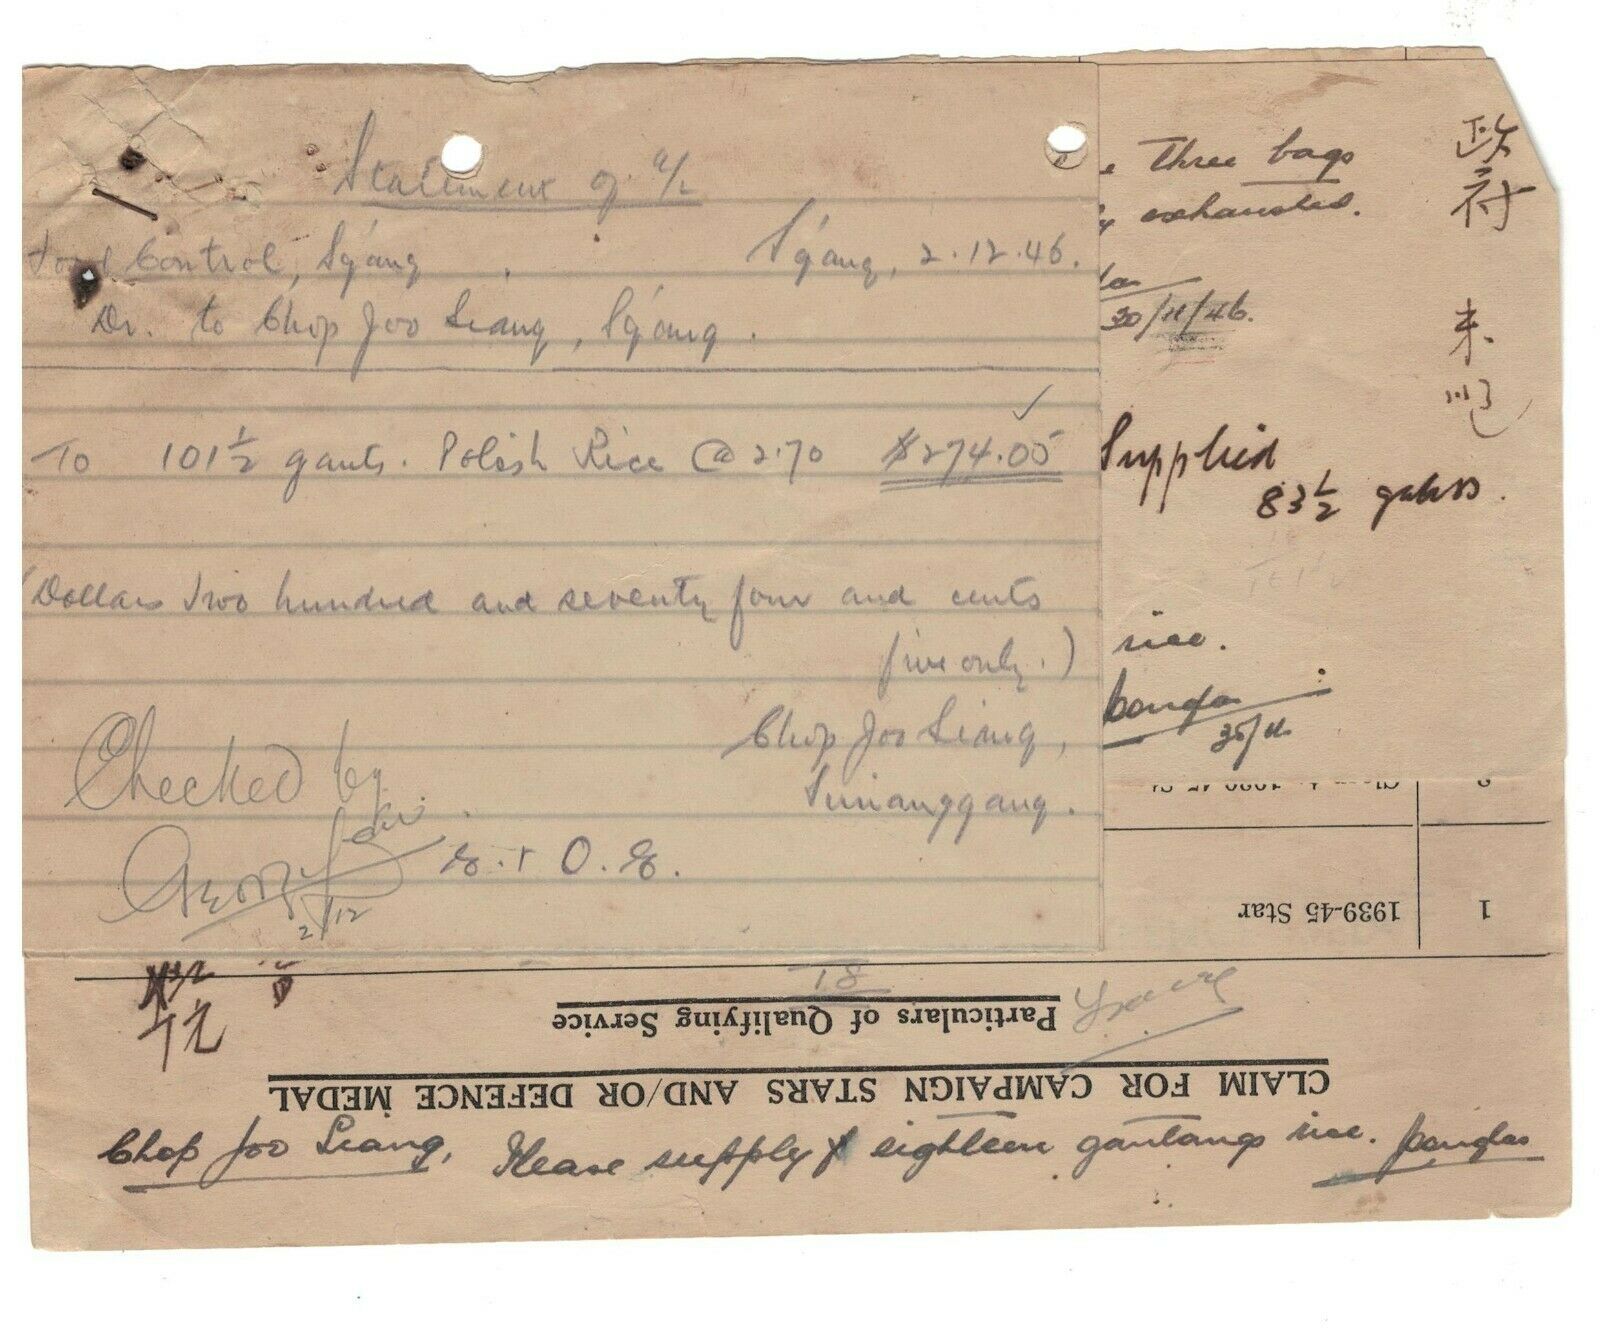 Statement of a/c
Food Control, S'gang
S'gang, 2.12.46.
Dr. to Chop Joo Siang, S'gang.
To 101½ gants. Polish Rice @ 2.70 $274.05
(Dollars two hundred and seventy four and cents
five only.)
Chop Joo Siang,
Simanggang.
Checked by
2/12
E. & O. E.
three bags
exhausted.
30/11/46.
政府
未
Supplied
83½
rice.
30/11
1 1939-45 Star
18
Particulars of Qualifying Service
CLAIM FOR CAMPAIGN STARS AND/OR DEFENCE MEDAL
Chop Joo Siang, Please supply eighteen gantangs rice.